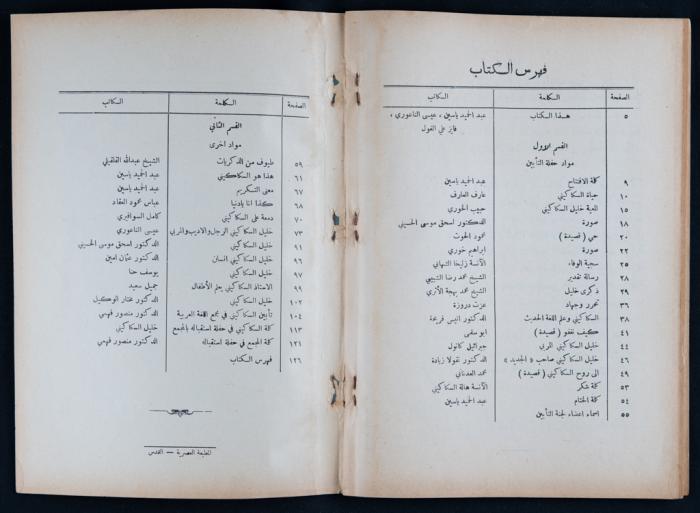 فهرس الكتاب
الصفحة الكلمة الكاتب
٥ هذا الكتاب عبد الحميد ياسين ، عيسى الناعوري ،
فايز علي الغول
القسم الاول
مواد حفلة التأبين
٩ كلمة الافتتاح عبد الحميد ياسين
١٠ حياة السكاكيني عارف العارف
١٥ خليل السكاكيني حبيب الخوري
١٨ صورة الدكتور اسحق موسى الحسيني
٢٠ حي ( قصيدة ) محمود الحوت
٢٢ صورة ابراهيم خوري
٢٥ سجية الوفاء الآنسة زليخا الشهابي
٢٨ رسالة تقدير الشيخ محمد رضا الشبيبي
٢٩ ذكرى خليل الشيخ محمد بهجة الأثري
٣٦ تحرر وجهاد عزت دروزة
٣٨ السكاكيني وعلم اللغة الحديث الدكتور انيس فريحة
٤١ كيف نغفو ( قصيدة ) ابو سلمى
٤٤ خليل السكاكيني المربي جبرائيل كاتول
٤٦ خليل السكاكيني صاحب « الجديد » الدكتور نقولا زيادة
٤٩ الى روح السكاكيني ( قصيدة ) محمد العدناني
٥٣ كلمة شكر الآنسة هالة السكاكيني
٥٤ كلمة الختام عبد الحميد ياسين
٥٥ اسماء اعضاء لجنة التأبين
الصفحة الكلمة الكاتب
القسم الثاني
مواد اخرى
٥٩ طيوف من الذكريات الشيخ عبدالله القلقيلي
٦١ هذا هو السكاكيني عبد الحميد ياسين
٦٧ معنى التكريم عبد الحميد ياسين
٦٨ كذا انا يادنيا عباس محمود العقاد
٧٠ دمعة على السكاكيني كامل السوافيري
٧٣ خليل السكاكيني الرجل والاديب والمربي عيسى الناعوري
٩١ خليل السكاكيني الدكتور اسحق موسى الحسيني
٩٦ خليل السكاكيني انسان الدكتور عثمان امين
٩٧ خليل السكاكيني يوسف حنا
٩٩ الاستاذ السكاكيني يعلم الأطفال جميل سعيد
١٠٢ خليل السكاكيني الدكتور مختار الوكيل
١٠٤ تأبين السكاكيني في مجمع اللغة العربية الدكتور منصور فهمي
١١٣ كلمة السكاكيني في حفلة استقباله بالمجمع خليل السكاكيني
١٢١ كلمة المجمع في حفلة استقباله الدكتور منصور فهمي
١٢٦ فهرس الكتاب
المطبعة العصرية — القدس